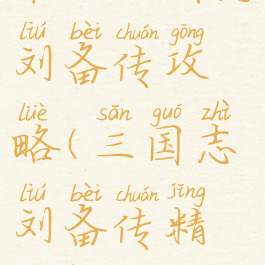 liú bèi chuán gōng
刘备传攻
lüè sān guó zhì
略(三国志
liú bèi chuán jīng
刘备传精